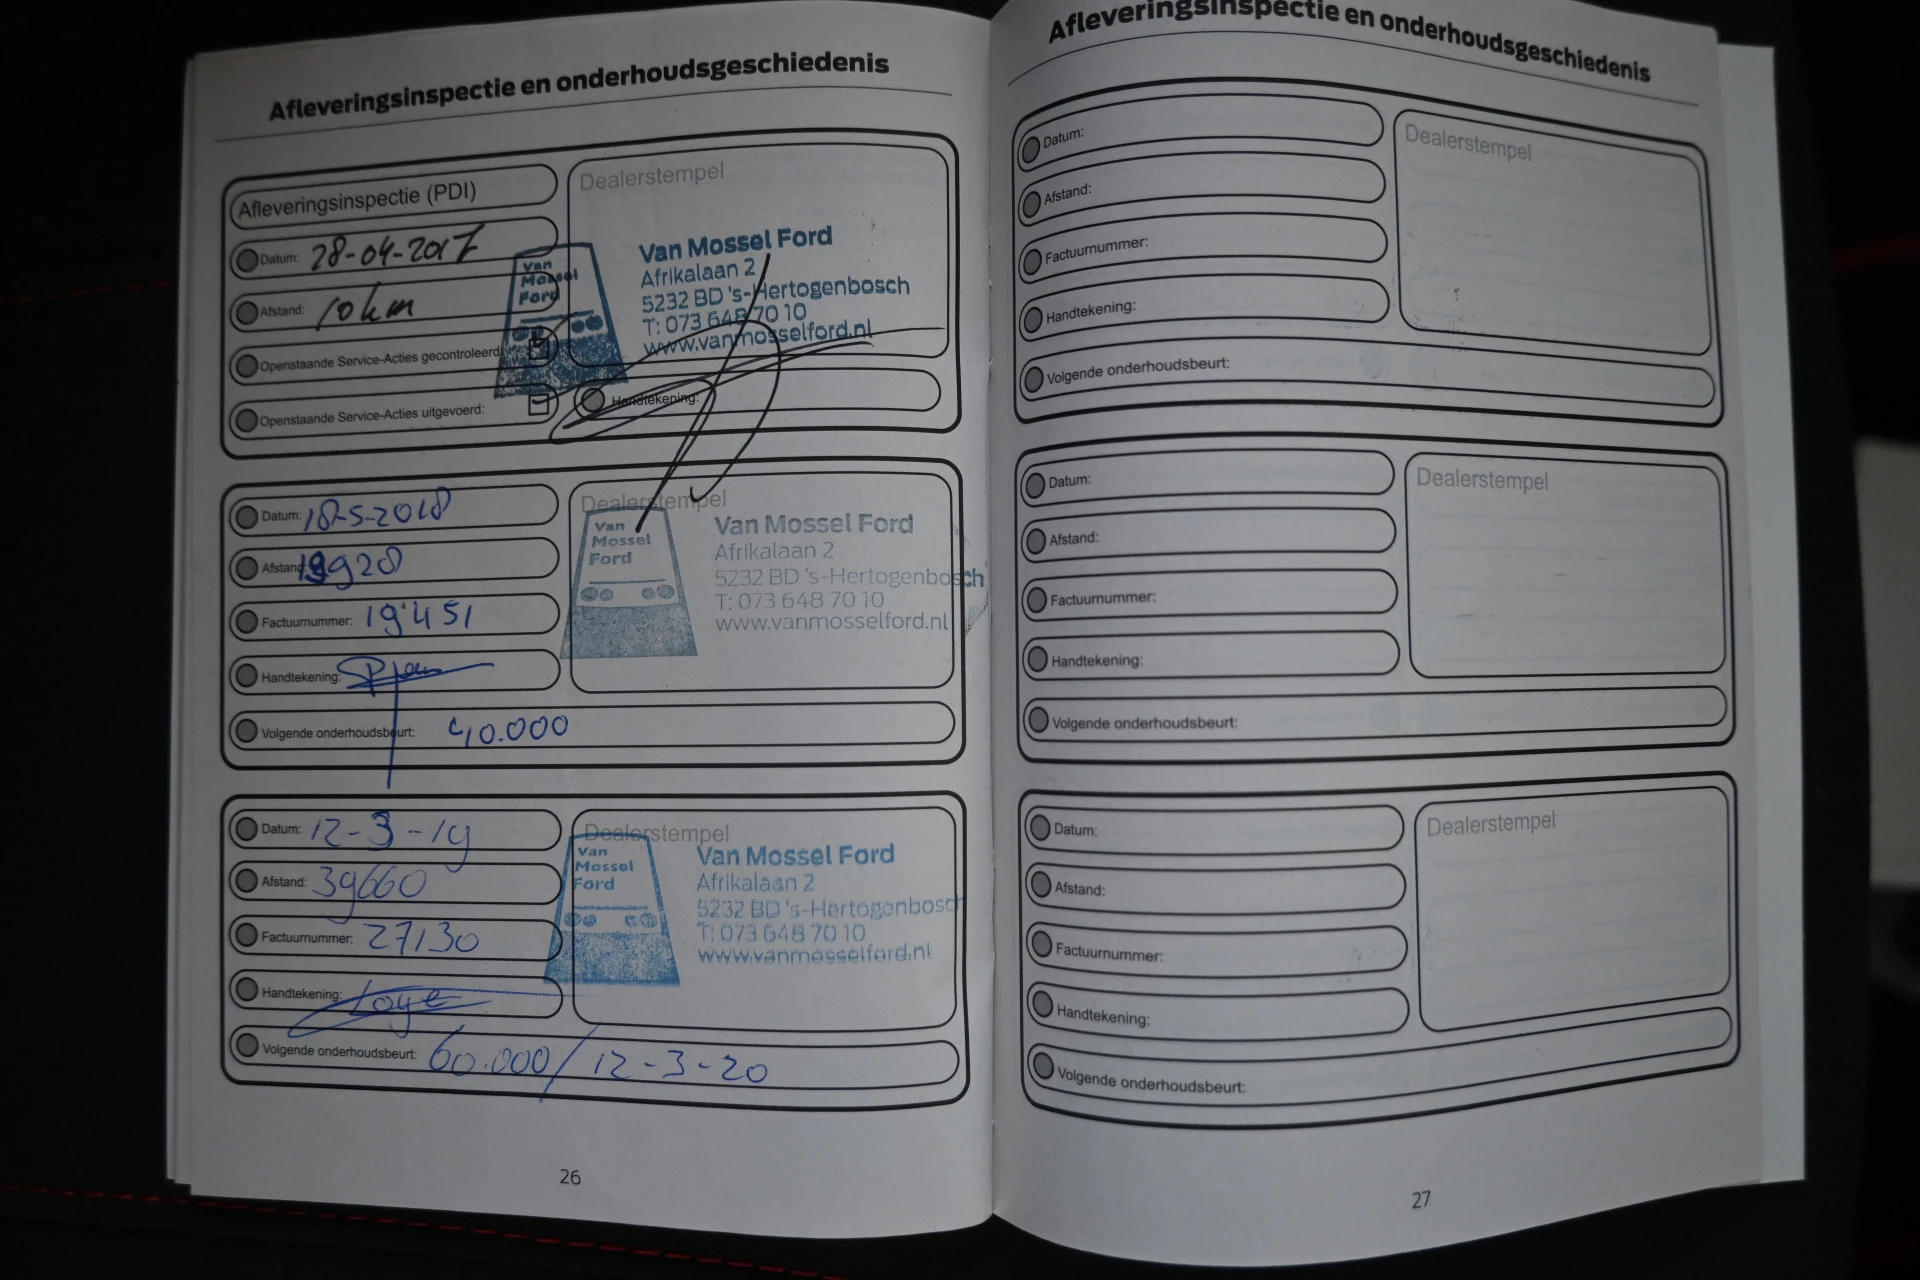 Afleveringsinspectie en onderhoudsgeschiedenis
Afleveringsinspectie (PDI)
Datum: 28-04-2017
Afstand: 10 km
Openstaande Service-Acties gecontroleerd
Openstaande Service-Acties uitgevoerd:
Dealerstempel
Van
Mossel
Ford
Van Mossel Ford
Afrikalaan 2
5232 BD 's-Hertogenbosch
T: 073 648 70 10
www.vanmosselford.nl
Handtekening:
Datum: 18-5-2018
Afstand: 19920
Factuurnummer: 19451
Handtekening:
Volgende onderhoudsbeurt: 40.000
Dealerstempel
Van
Mossel
Ford
Van Mossel Ford
Afrikalaan 2
5232 BD 's-Hertogenbosch
T: 073 648 70 10
www.vanmosselford.nl
Datum: 12-3-19
Afstand: 39660
Factuurnummer: 27130
Handtekening:
Volgende onderhoudsbeurt: 60.000/12-3-20
Dealerstempel
Van
Mossel
Ford
Van Mossel Ford
Afrikalaan 2
5232 BD 's-Hertogenbosch
T: 073 648 70 10
www.vanmosselford.nl
26
Afleveringsinspectie en onderhoudsgeschiedenis
Datum:
Afstand:
Factuurnummer:
Handtekening:
Volgende onderhoudsbeurt:
Dealerstempel
Datum:
Afstand:
Factuurnummer:
Handtekening:
Volgende onderhoudsbeurt:
Dealerstempel
Datum:
Afstand:
Factuurnummer:
Handtekening:
Volgende onderhoudsbeurt:
Dealerstempel
27